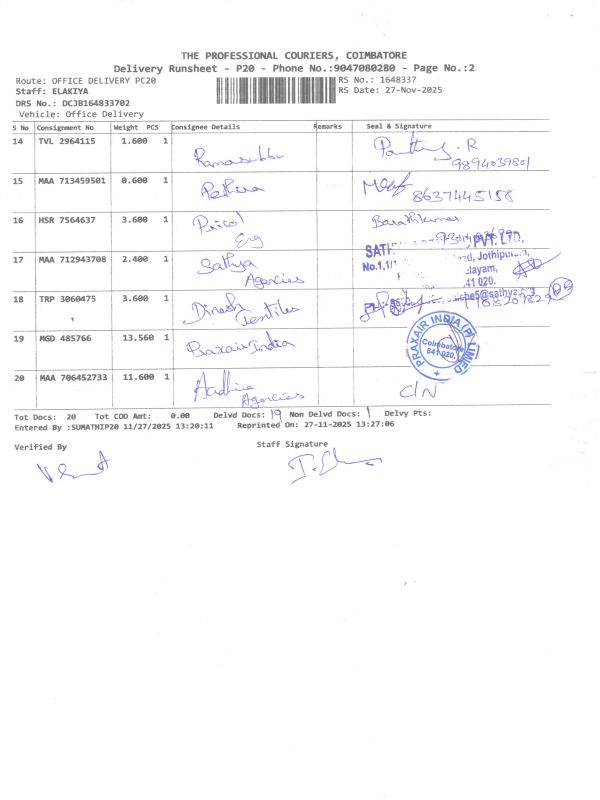 THE PROFESSIONAL COURIERS, COIMBATORE
Delivery Runsheet - P20 - Phone No.:9047080280 - Page No.:2
Route: OFFICE DELIVERY PC20
RS No.: 1648337
Staff: ELAKIYA
RS Date: 27-Nov-2025
DRS No.: DCJB164833702
Vehicle: Office Delivery
S No Consignment No Weight PCS Consignee Details Remarks Seal & Signature
14 TVL 2964115 1.600 1
9894039801
15 MAA 713459501 0.600 1
8637445158
16 HSR 7564637 3.600 1 Pricol
Eng
Barathkumar
17 MAA 712943708 2.400 1 Sathya
Agencies
PVT. LTD.
No.1,1/1 Jothipuram,
641 020.
18 TRP 3060475 3.600 1 Dinesh
Textiles
19 MGD 485766 13.560 1 Praxair India
PRAXAIR INDIA (P) LIMITED
Coimbatore
641 020.
20 MAA 706452733 11.600 1
Agencies
C/N
Tot Docs: 20 Tot COD Amt: 0.00 Delvd Docs: 19 Non Delvd Docs: 1 Delvy Pts:
Entered By :SUMATHIP20 11/27/2025 13:20:11 Reprinted On: 27-11-2025 13:27:06
Verified By
Staff Signature